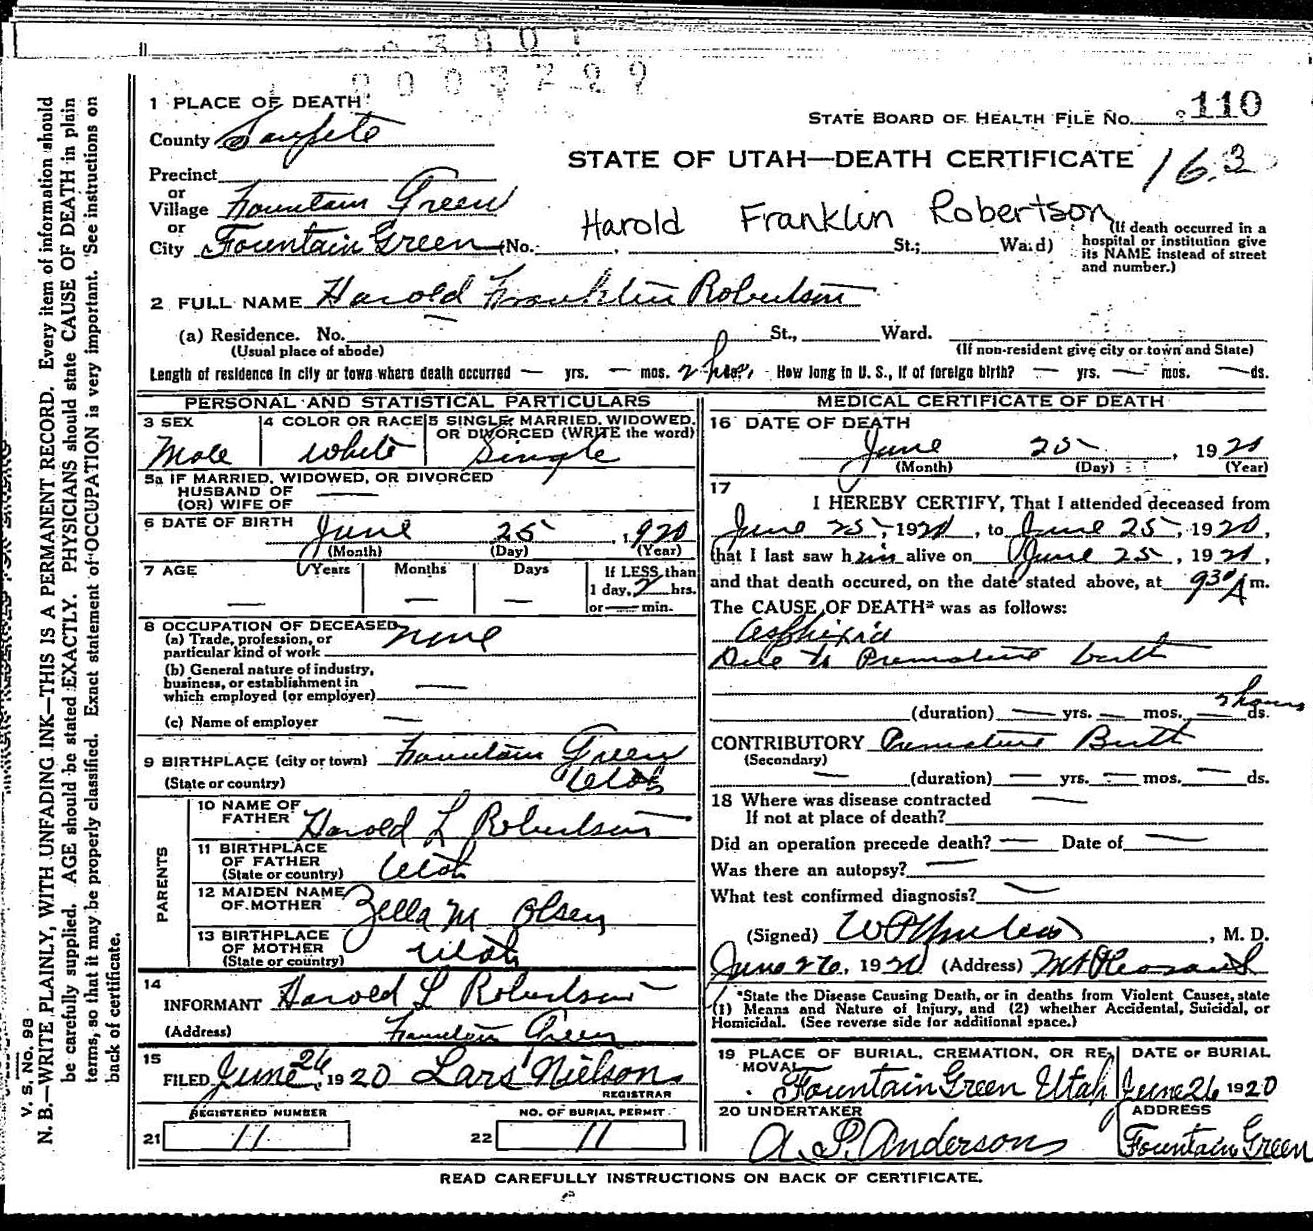 0003299
1 PLACE OF DEATH
STATE BOARD OF HEALTH FILE No. 110
County Sanpete
STATE OF UTAH—DEATH CERTIFICATE 163
Precinct
or
Village Fountain Green
or
Harold Franklin Robertson
City Fountain Green (No. St.; Ward)
(If death occurred in a hospital or institution give its NAME instead of street and number.)
2 FULL NAME Harold Franklin Robertson
(a) Residence. No. — St., Ward.
(Usual place of abode) (If non-resident give city or town and State)
Length of residence in city or town where death occurred — yrs. — mos. 2 hrs. How long in U. S., if of foreign birth? — yrs. — mos. — ds.
PERSONAL AND STATISTICAL PARTICULARS
3 SEX
Male
4 COLOR OR RACE
White
5 SINGLE, MARRIED, WIDOWED, OR DIVORCED (WRITE the word)
Single
5a IF MARRIED, WIDOWED, OR DIVORCED
HUSBAND OF
(OR) WIFE OF —
6 DATE OF BIRTH June 25, 1920
(Month) (Day) (Year)
7 AGE Years Months Days If LESS than
1 day, 2 hrs.
— — — or — min.
8 OCCUPATION OF DECEASED
(a) Trade, profession, or
particular kind of work none
(b) General nature of industry,
business, or establishment in
which employed (or employer) —
(c) Name of employer —
9 BIRTHPLACE (city or town) Fountain Green
(State or country) Utah
PARENTS
10 NAME OF
FATHER Harold L Robertson
11 BIRTHPLACE
OF FATHER
(State or country) Utah
12 MAIDEN NAME
OF MOTHER Zella M Olsen
13 BIRTHPLACE
OF MOTHER
(State or country) Utah
14
INFORMANT Harold L Robertson
(Address) Fountain Green
15
FILED June 26, 1920 Lars Nielson
REGISTRAR
REGISTERED NUMBER NO. OF BURIAL PERMIT
21 11 22 11
MEDICAL CERTIFICATE OF DEATH
16 DATE OF DEATH
June 25, 1920
(Month) (Day) (Year)
17
I HEREBY CERTIFY, That I attended deceased from
June 25, 1920, to June 25, 1920,
that I last saw him alive on June 25, 1920,
and that death occured, on the date stated above, at 930 A m.
The CAUSE OF DEATH* was as follows:
Asphixia
Due to Premature birth
2 hours
(duration) — yrs. — mos. — ds.
CONTRIBUTORY Premature Birth
(Secondary)
— (duration) — yrs. — mos. — ds.
18 Where was disease contracted
If not at place of death? —
Did an operation precede death? — Date of —
Was there an autopsy? —
What test confirmed diagnosis? —
(Signed) , M. D.
June 26, 1920 (Address) Mt Pleasant
*State the Disease Causing Death, or in deaths from Violent Causes, state
(1) Means and Nature of Injury, and (2) whether Accidental, Suicidal, or
Homicidal. (See reverse side for additional space.)
19 PLACE OF BURIAL, CREMATION, OR REMOVAL
Fountain Green Utah
DATE OF BURIAL
June 26 1920
20 UNDERTAKER
A. P. Anderson
ADDRESS
Fountain Green
READ CAREFULLY INSTRUCTIONS ON BACK OF CERTIFICATE.
V. S. No. 98
N. B.—WRITE PLAINLY, WITH UNFADING INK—THIS IS A PERMANENT RECORD. Every item of information should
be carefully supplied. AGE should be stated EXACTLY. PHYSICIANS should state CAUSE OF DEATH in plain
terms, so that it may be properly classified. Exact statement of OCCUPATION is very important. See instructions on
back of certificate.